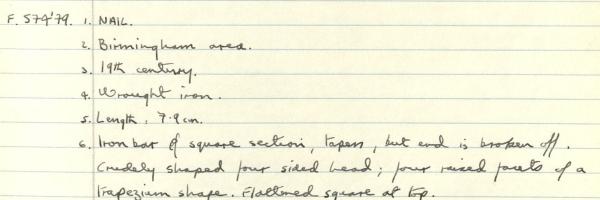 F. 574'79. 1. NAIL.
2. Birmingham area.
3. 19th century.
4. Wrought iron.
5. Length, 7.9 cm.
6. Iron bar of square section, tapers, but end is broken off.
Crudely shaped four sided head; four raised facets of a
trapezium shape. Flattened square at top.